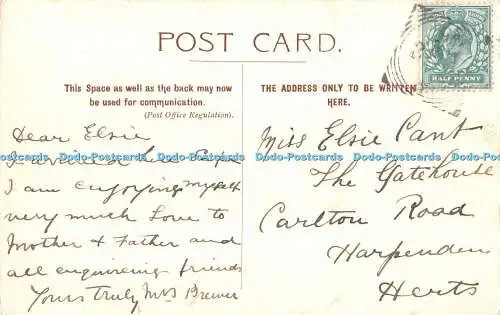 POST CARD.
This Space as well as the back may now
be used for communication.
(Post Office Regulation).
THE ADDRESS ONLY TO BE WRITTEN
HERE.
HALF PENNY
Dear Elsie
I arrived
I am enjoying myself
very much Love to
Mother & Father and
all enquireing friends
Yours truly Mrs Brewer
Miss Elsie Cant
The Gatehouse
Carlton Road
Harpenden
Herts
Dodo-Postcards Dodo-Postcards Dodo-Postcards Dodo-Postcards Dodo-Postcards